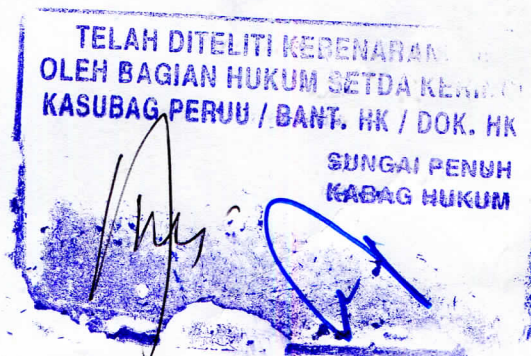 TELAH DITELITI KEBENARAN
OLEH BAGIAN HUKUM SETDA
KASUBAG PERUU / BANT. HK / DOK. HK
SUNGAI PENUH
KABAG HUKUM